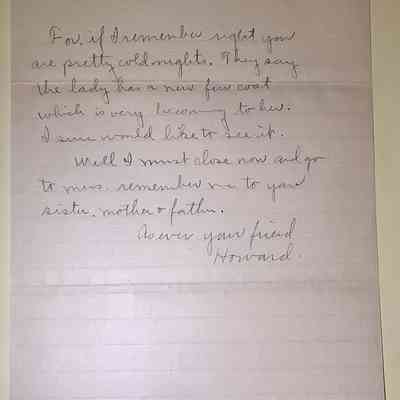 For, if I remember right you
are pretty cold nights. They say
the lady has a new fur coat
which is very becoming to her.
I sure would like to see it.
Well I must close now and go
to mess. remember me to your
sister, mother & father.
As ever your friend
Howard.